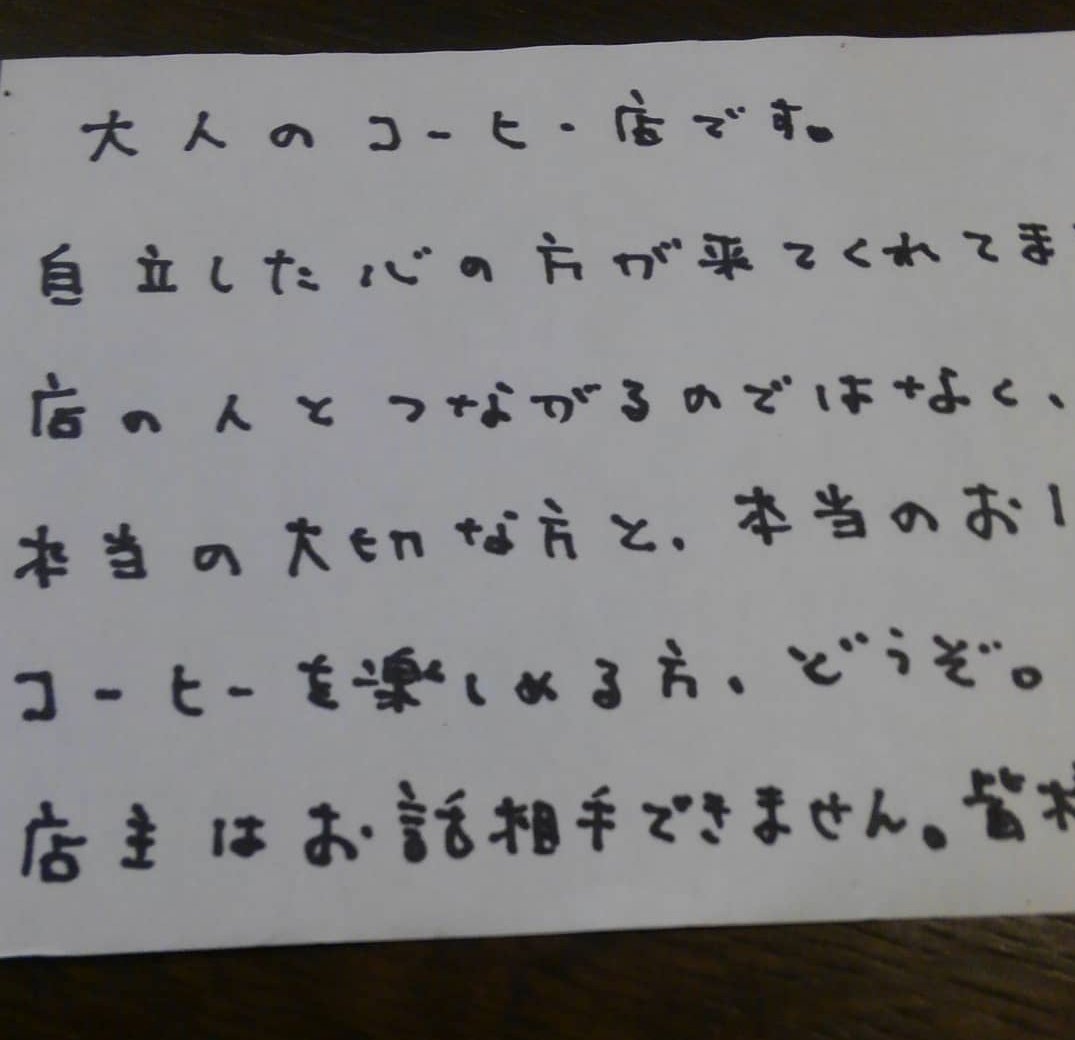 大人のコーヒー店です。
自立した心の方が来てくれてま
店の人とつながるのではなく、
本当の大切な方と、本当のお
コーヒーを楽しめる方、どうぞ。
店主はお話相手できません。皆